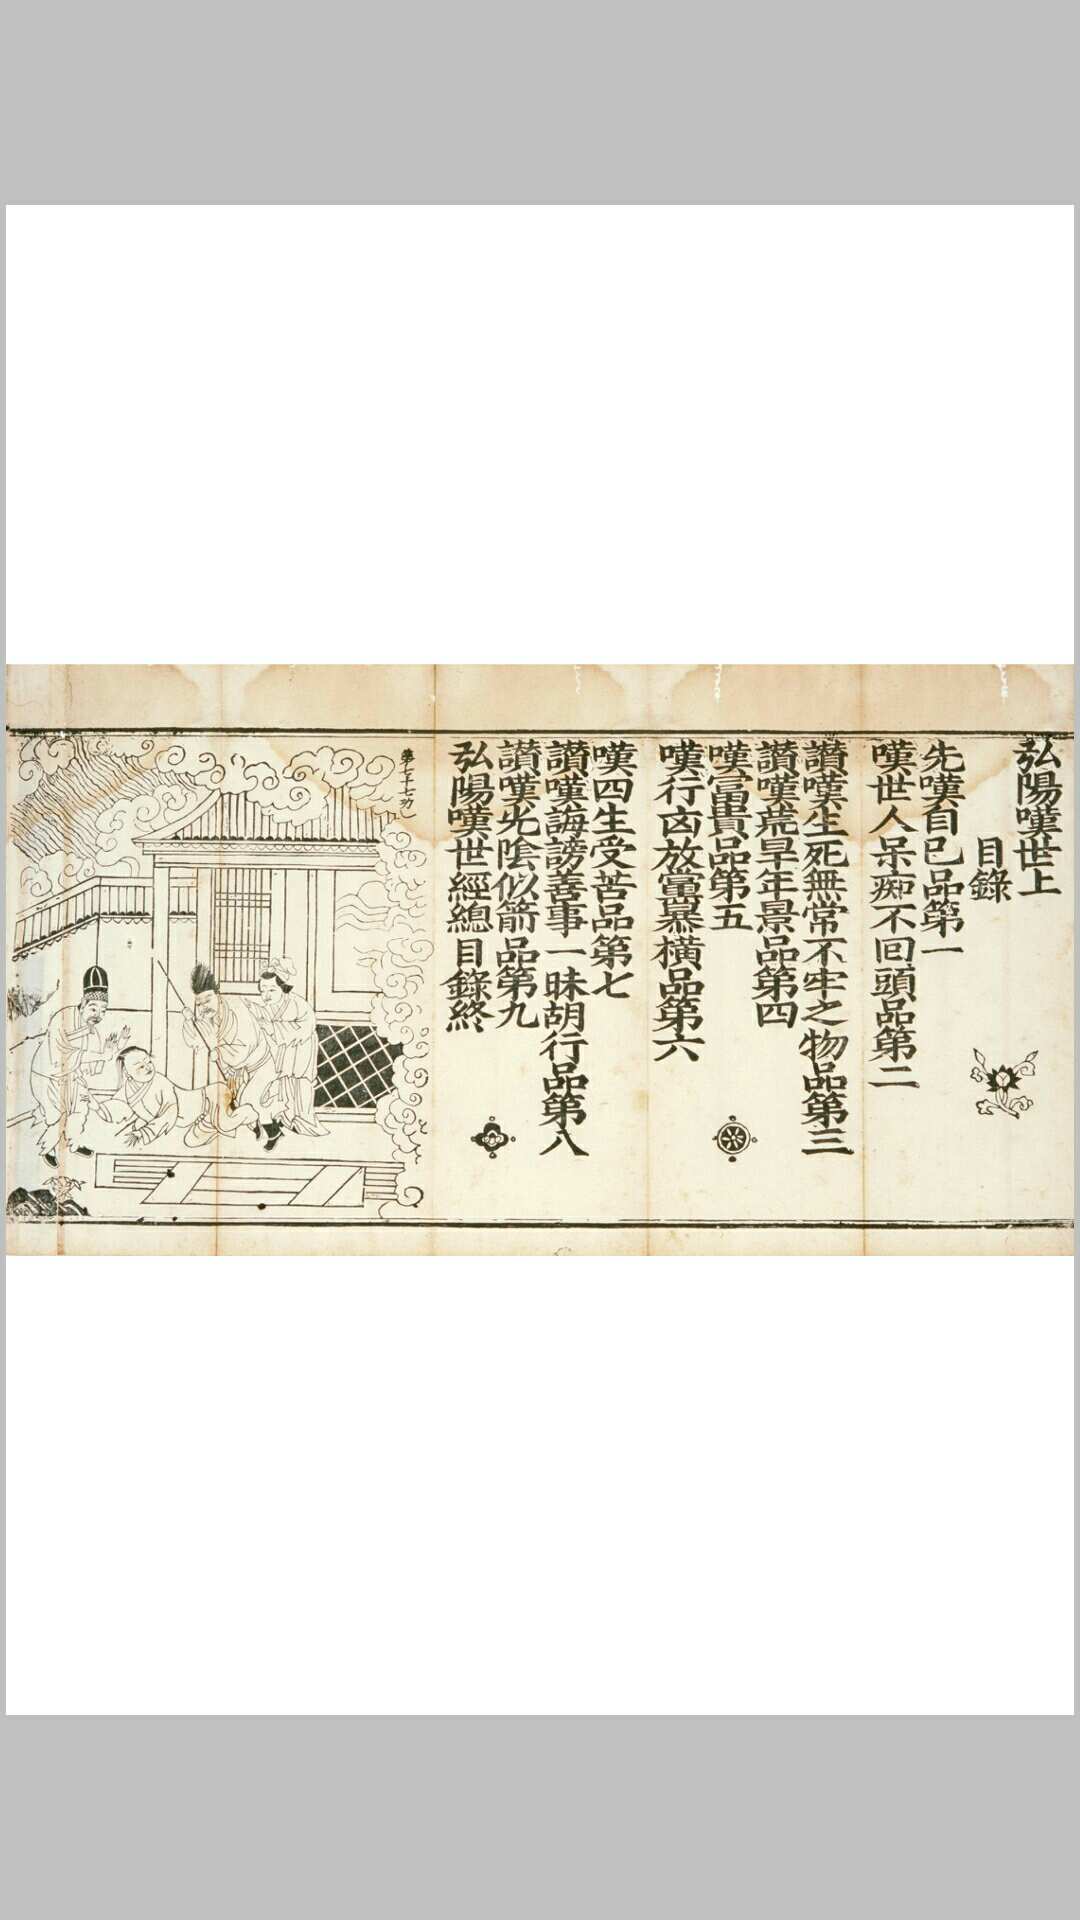 弘陽嘆世上
目錄
先嘆自己品第一
嘆世人呆痴不回頭品第二
讃嘆生死無常不牢之物品第三
讃嘆荒旱年景品第四
嘆富貴品第五
嘆行凶放黨暴橫品第六
嘆四生受苦品第七
讃嘆誨謗善事一昧胡行品第八
讃嘆光陰似箭品第九
弘陽嘆世經總目錄終